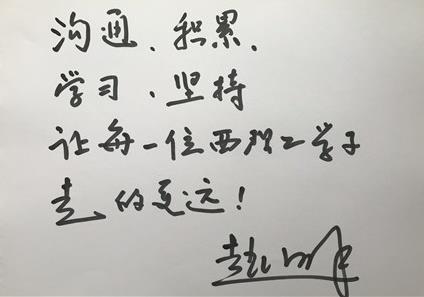 沟通、积累、
学习、坚持
让每一位西理工学子
走的更远!